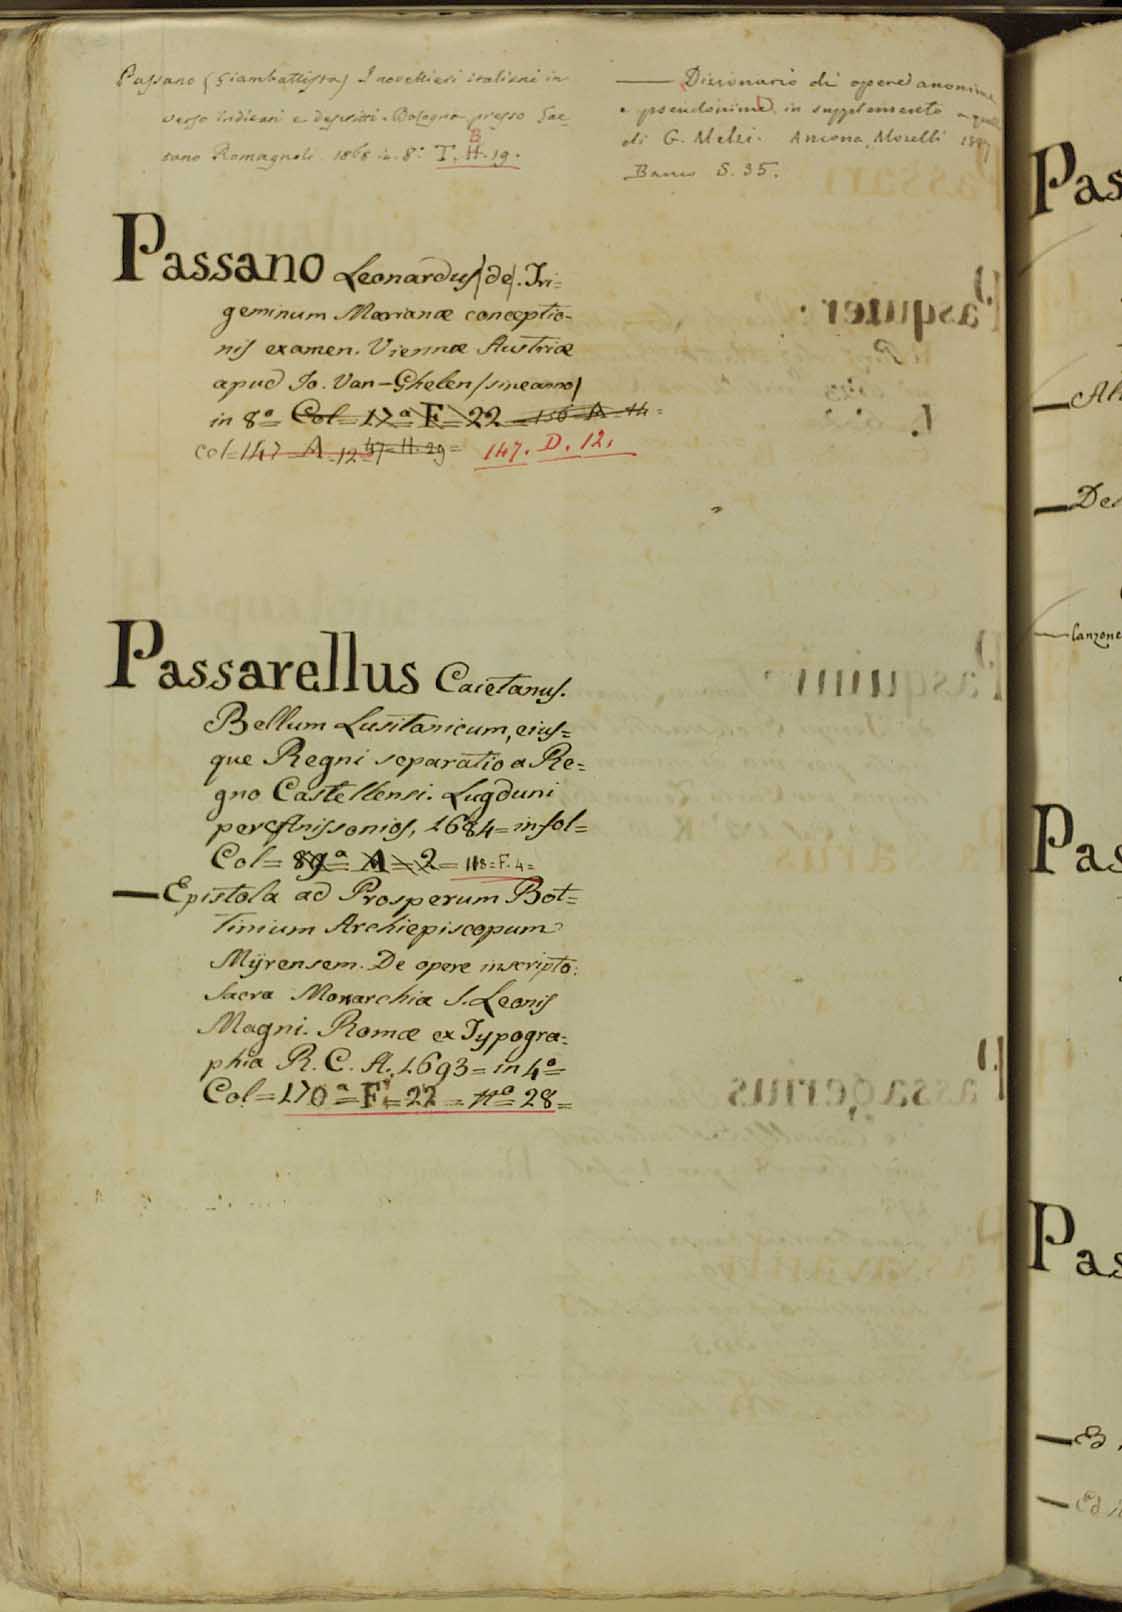 Passano (Giambattista) I novellieri italiani in
verso indicati e descritti. Bologna presso Gae-
tano Romagnoli 1868 in 8.° T. H. 19.
B
— Dizionario di opere anonime
e pseudonime in supplemento a quello
di G. Melzi. Ancona, Morelli 1887
Banco S. 35.
Passano Leonardus (de). Tri=
geminum Marianæ conceptio-
nis examen. Viennæ Austriæ
apud Jo. Van-Ghelen (sine anno)
in 8° Col= 17ª F= 22 = 156=A=14=
col=147=A=12 47=H.29= 147. D. 12.
Passarellus Caietanus.
Bellum Lusitanicum, eius=
que Regni separatio a Re=
gno Castellensi. Lugduni
per Anissonios, 1684= in fol=
Col= 89ª A=2= 118=F.4=
— Epistola ad Prosperum Bot=
tinium Archiepiscopum
Mÿrensem. De opere inscripto:
Sacra Monarchia S. Leonis
Magni. Romæ ex Typogra=
phia R. C. A. 1693= in 4°=
Col= 170ª=F=22= N°= 28=
Pas
— Al
— De
— Canzone
Pas
Pas
— Ed